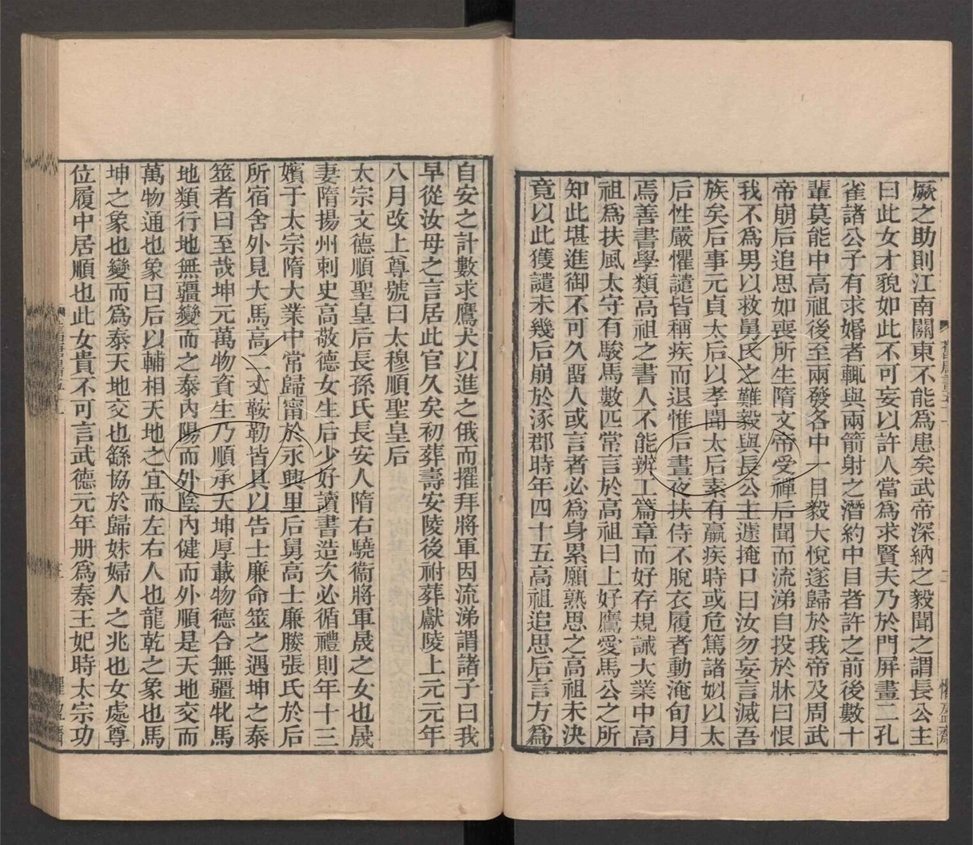 厥之助則江南關東不能爲患矣武帝深納之毅聞之謂長公主
曰此女才貌如此不可妄以許人當爲求賢夫乃於門屏畫二孔
雀諸公子有求婚者輒與兩箭射之潛約中目者許之前後數十
輩莫能中高祖後至兩發各中一目毅大悅遂歸於我帝及周武
帝崩后追思如喪所生隋文帝受禪后聞而流涕自投於牀曰恨
我不爲男以救舅氏之難毅與長公主遽掩口曰汝勿妄言滅吾
族矣后事元貞太后以孝聞太后素有羸疾時或危篤諸姒以太
后性嚴懼譴皆稱疾而退惟后晝夜扶侍不脫衣履者動淹旬月
焉善書學類高祖之書人不能辨工篇章而好存規誡大業中高
祖爲扶風太守有駿馬數匹常言於高祖曰上好鷹愛馬公之所
知此堪進御不可久畱人或言者必爲身累願熟思之高祖未決
竟以此獲譴未幾后崩於涿郡時年四十五高祖追思后言方爲
自安之計數求鷹犬以進之俄而擢拜將軍因流涕謂諸子曰我
早從汝母之言居此官久矣初葬壽安陵後祔葬獻陵上元元年
八月改上尊號曰太穆順聖皇后
太宗文德順聖皇后長孫氏長安人隋右驍衞將軍晟之女也晟
妻隋揚州刺史高敬德女生后少好讀書造次必循禮則年十三
嬪于太宗隋大業中常歸寧於永興里后舅高士廉媵張氏於后
所宿舍外見大馬高二丈鞍勒皆具以告士廉命筮之遇坤之泰
筮者曰至哉坤元萬物資生乃順承天坤厚載物德合無疆牝馬
地類行地無疆變而之泰內陽而外陰內健而外順是天地交而
萬物通也象曰后以輔相天地之宜而左右人也龍乾之象也馬
坤之象也變而爲泰天地交也繇協於歸妹婦人之兆也女處尊
位履中居順也此女貴不可言武德元年册爲秦王妃時太宗功